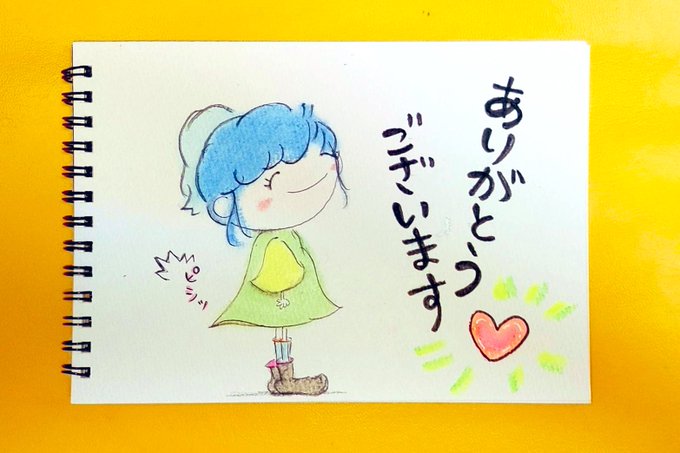 ありがとう
ございます
ピシッ